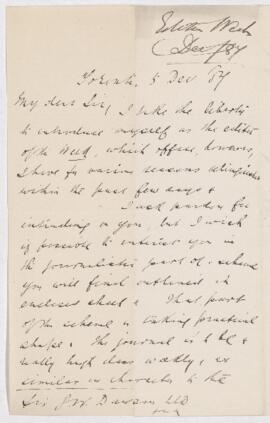 Editor Week
(Dec /87
Toronto 5 Dec 87
My dear Sir, I take the liberty
to introduce myself as the editor
of the Week, which office, however,
I have for various reasons relinquished
within the past few days &
I ask pardon for
intruding on you, but I wish
if possible to interest you in
the journalistic part of a scheme
you will find outlined in
enclosed sheet & That part
of the scheme is taking practical
shape & The journal is to be a
really high class weekly, as
similar in character to the
Sir J W. Dawson LLD